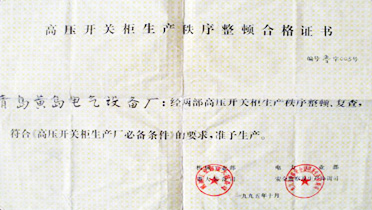 高压开关柜生产秩序整顿合格证书
编号 鲁
青岛黄岛电气设备厂：经两部高压开关柜生产秩序整顿、复查，
符合《高压开关柜生产厂必备条件》的要求，准予生产。
一九九五年十月